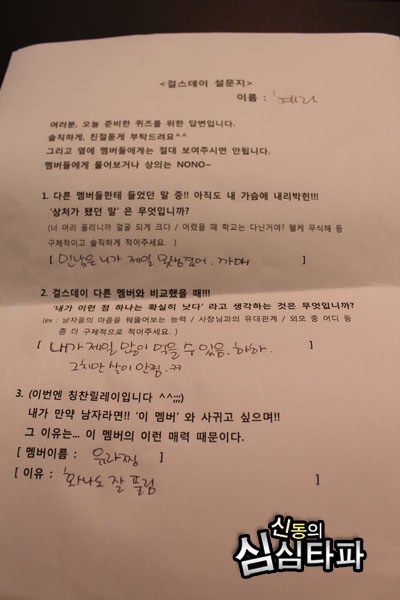 <걸스데이 설문지>
이름 : 혜리
여러분, 오늘 준비한 퀴즈를 위한 답변입니다.
솔직하게, 친절돋게 부탁드려요^^
그리고 옆에 멤버들에게는 절대 보여주시면 안됩니다.
멤버들에게 물어보거나 상의는 NONO~
1. 다른 멤버들한테 들었던 말 중!! 아직도 내 가슴에 내리박힌!!!
'상처가 됐던 말' 은 무엇입니까?
(너 머리 올리니까 얼굴 되게 크다 / 어렸을 때 학교는 다닌거야? 왤케 무식해 등
구체적이고 솔직하게 적어주세요. )
[ 니가 제일 못생겼어. ]
2. 걸스데이 다른 멤버와 비교했을 때!!!
'내가 이런 점 하나는 확실히 낫다' 라고 생각하는 것은 무엇입니까?
(ex : 남자들의 마음을 꿰뚫어보는 능력 / 사장님과의 유대관계 / 외모 중 어디 등
좀 더 구체적으로 적어주세요. )
[ 내가 제일 많이 먹을 수 있음. 하하. ]
그치만 살이 안찜. ㅋㅋ
3. (이번엔 칭찬릴레이입니다 ^^;;;)
내가 만약 남자라면!! '이 멤버' 와 사귀고 싶으며!!
그 이유는... 이 멤버의 이런 매력 때문이다.
[ 멤버이름 : 유라찡 ]
[ 이유 : 화나도 잘 풀림 ]
신동의
심심타파